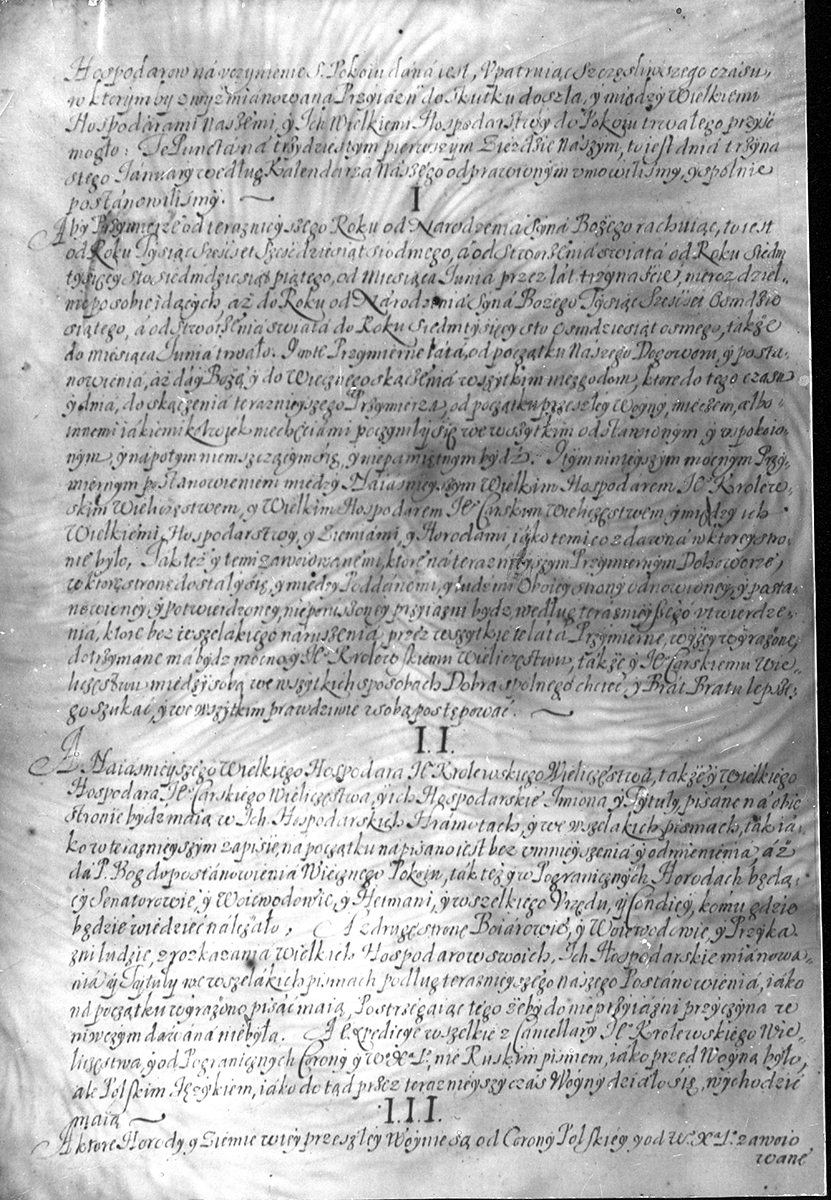 Hospodarow ná vczynienie S. Pokoiu dána iest, Vpatruiąc Szczęśliwszego czasu,
w ktorym by z wyż mianowana Przyiaźń do skutku doszła, ÿ między Wielkiemi
Hospodárami Nászemi, ÿ Ich Wielkiemi Hospodarstwy do Pokoiu trwałego przyść
mogło: Te Puncta ná trzydziestym pierwszym Zieździe Naszym, to iest dniá trzyna
stego Januarÿ według Kalendarza Nászego odprawionym vmowiliśmy, y spolnie
postánowiliśmy.
I
Aby Przymierze od teraznieyszego Roku od Národzenia Syná Bożego rachuiąc, to iest
od Roku Tysiąc Sześćset Sześćdziesiąt siodmego, á od Stworzenia świátá od Roku Siedm
tysięcy sto siedmdziesiąt piątego, od Miesiąca Iunia przez lát trzynaście, nierozdziel-
nie po sobie idących, áż do Roku od Národzenia Syná Bożego Tysiąc Sześćset Osmdzie
siątego, á od Stworzenia świátá do Roku Siedmtysięcy sto Osmdziesiąt osmego, także
do miesiąca Iunia trwało. I w te Przymierne látá, od początku Nászego Dogoworu, ÿ posta-
nowienia, áż da ÿ Bożą ÿ do Wiecznego skączenia wszytkim niezgodom, ktore do tego czasu
ÿ dnia, do skączenia teraznieyszego Przymierza, od początku przeszłey Woyny, mieczem, albo
innemi iákiemikolwiek niechęciami poczyniły się we wszytkim odstáwionym, ÿ vspokoio-
nym, ÿ nápotym niemszczącym się, ÿ niepamiętnym bydź. Y tym ninieyszym mocnym Przy-
miernym postánowieniem między Náiásnieyszym Wielkim Hospodarem Je° Krolew-
skim Wieliczęstwem, y Wielkim Hospodarem Je° Cárskim Wieliczęstwem, ÿ między ich
Wielkiemi Hospodarstwy, y Ziemiámi, y Horodami iáko temi co z dawná w ktorey stro-
nie było, Tak też ÿ temi zawoiowanemi, ktore ná teraznieyszym Przymiernym Dohoworze,
w ktorą stronę dostały się, ÿ między Poddánemi, y ludźmi Oboiey strony odnowioney, ÿ posta-
nowioney ÿ potwierdzoney, nieporuszoney przyiáźni bydz według teráznieyszego vtwierdze-
nia, ktore bez wszelakiego naruszenia, przez wszytkie te látá Przymierne, wyżey wyrażone,
dotrzymane ma bydz mocno, ÿ Je° Krolewskiemu Wieliczęstwu, także ÿ Je° Cárskiemu Wie-
liczęstwu między sobą we wszytkich sposobach Dobra spolnego chcieć, ÿ Brát Brátu lepsze-
go szukáć, ÿ we wszytkim prawdziwie z sobą postępowáć.
I.I.
A Náiasnieyszego Wielkiego Hospodara Je° Krolewskiego Wieliczęstwá, także ÿ Wielkiego
Hospodára Je° Cárskiego Wieliczęstwa, ÿ ich Hospodarskie Imiona, y Tytuły, pisáne ná obie
stronie bydz máią w Ich Hospodarskich Hrámotach, ÿ we wszelakich pismach, ták iá-
ko w teraznieyszym zapisie, na początku nápisano iest bez vmnieyszenia ÿ odmienienia áż
dá P. Bog do postánowienia Wiecznego Pokoiu, ták też ÿ w Pogranicznych Horodach będą-
cy Senatorowie, ÿ Woiewodowie, ÿ Hetmani, ÿ wszelkiego Vrzędu, ÿ Condicÿ, komu gdzie
będzie wiedzieć náleżáło, A z drugą stronę Boiárowie, ÿ Woiewodowie, ÿ Przyka
zni ludzie, z rozkazania Wielkich Hospodarow swoich, Ich Hospodarskie mianowa-
nia ÿ Tytuły we wszelakich pismach podług teraznieyszego nászego Postanowienia, iáko
ná początku wyrażono, pisác máią, Postrzegáiąc tego żeby do nieprzyiáźni przyczyna w
niwczym dawána niebyła. A Expedicye wszelkie z Cancellarÿ Je° Krolewskiego Wie-
liczęstwa, ÿ od Pogranicznych Corony ÿ W° X° L°, nie Ruskim pismem, iáko przed Woyną było,
ale Polskim Językiem, iáko dotąd przez teraznieyszy czas Woyny działo się, wychodzić
máią
I.I.I.
A ktore Horody y Ziemie w tey przeszłey Woynie są od Corony Polskiey y od W° X° L° zawoio
wane